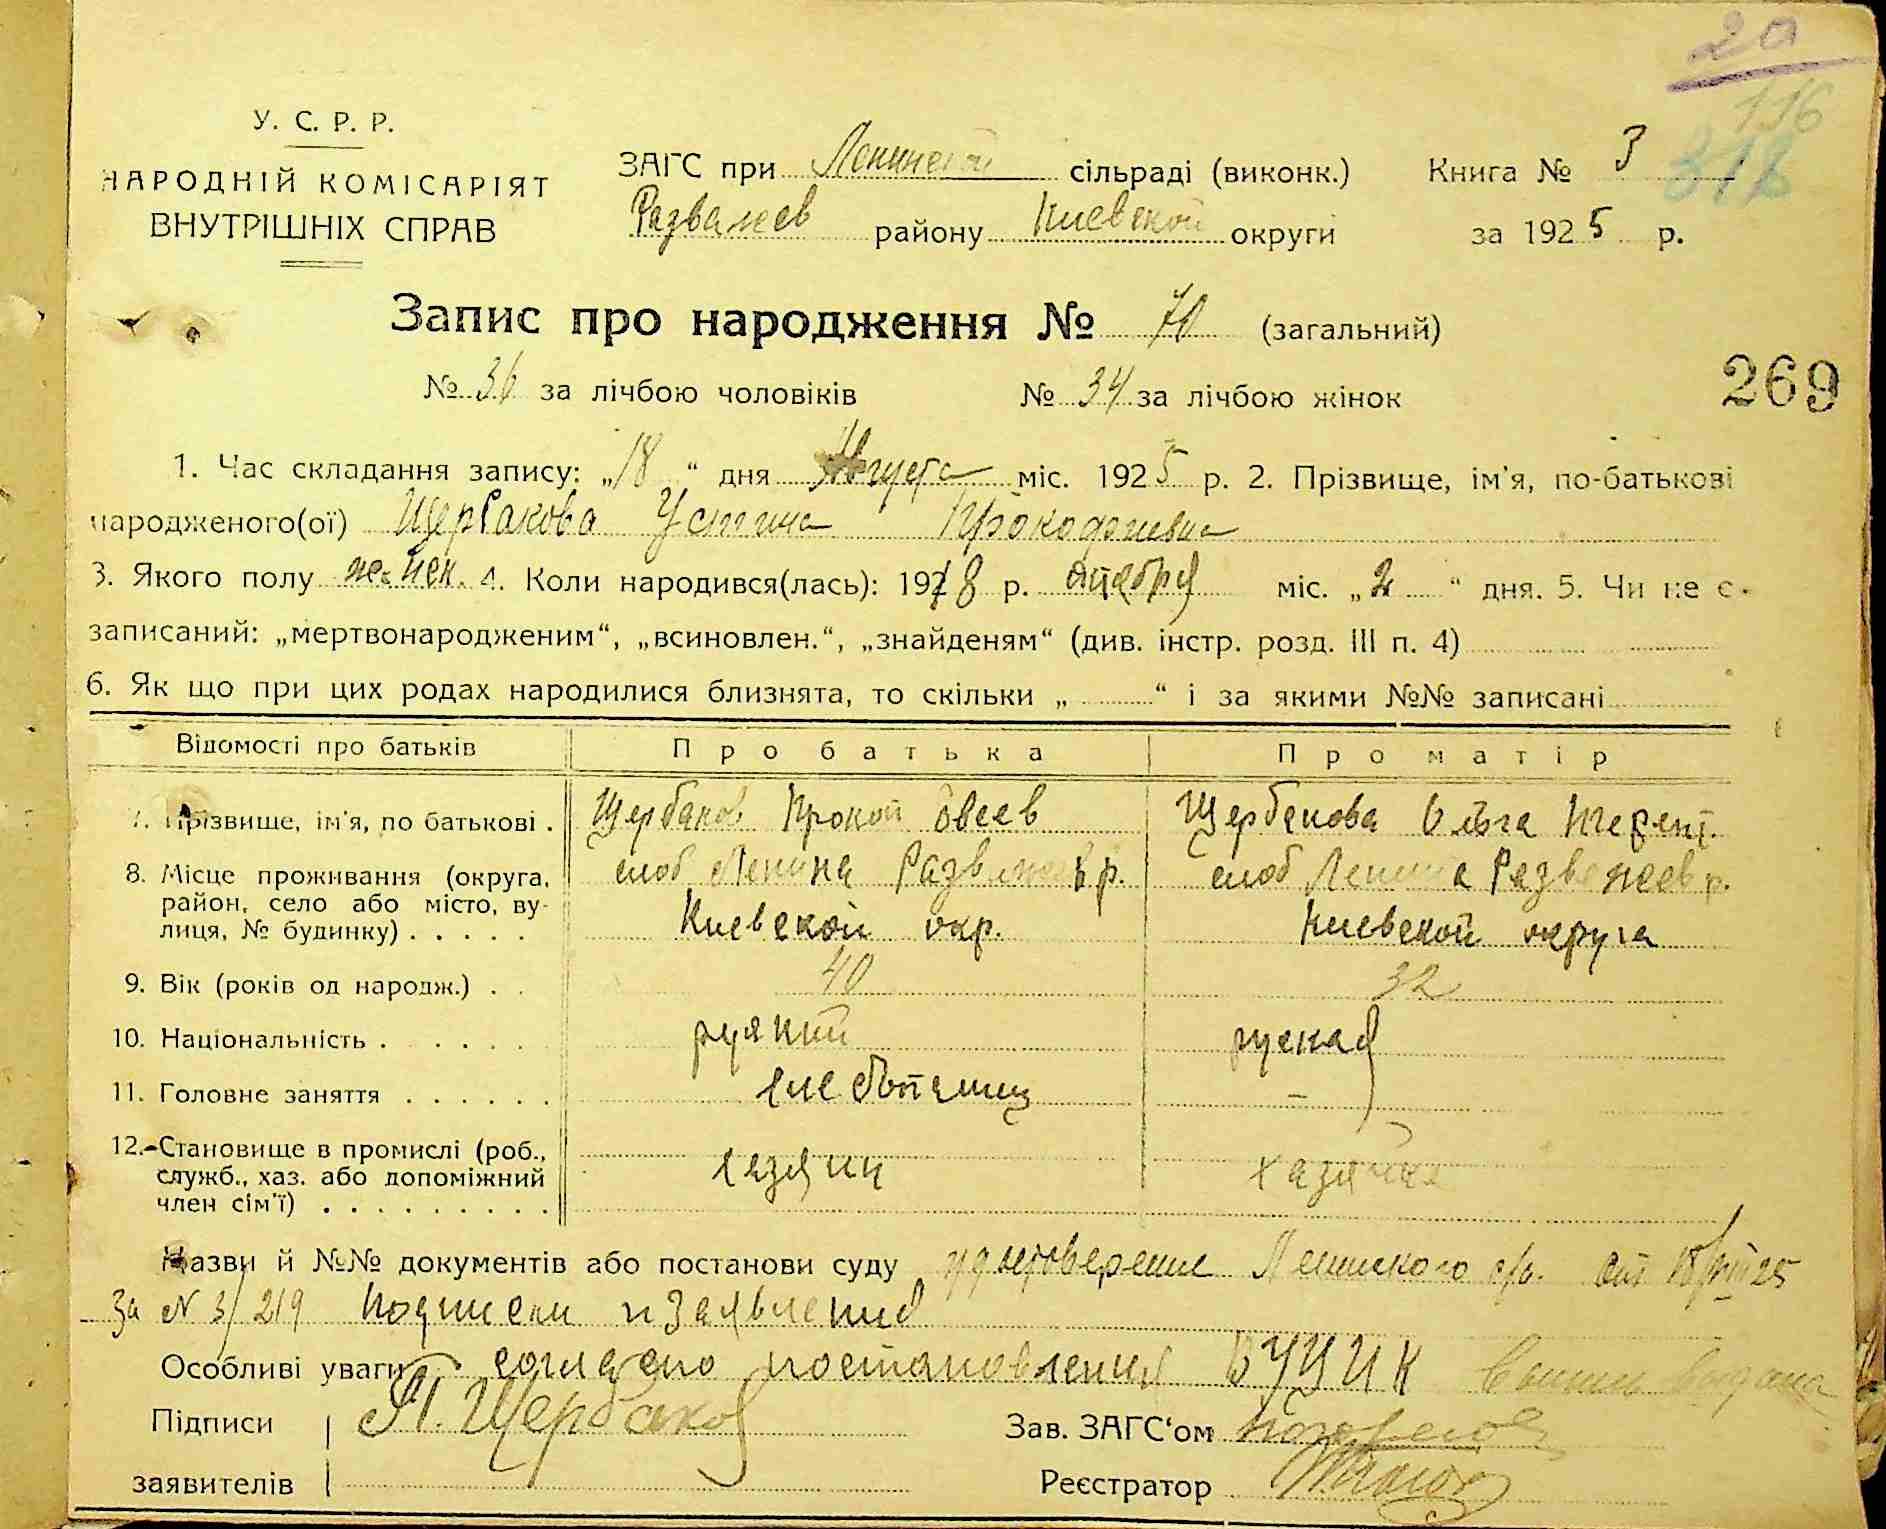 20
116
318
У. С. Р. Р.
НАРОДНІЙ КОМІСАРІЯТ
ВНУТРІШНІХ СПРАВ
ЗАГС при Ленинской сільраді (виконк.) Книга № 3
Разважев району Киевской округи за 1925 р.
Запис про народження № 70 (загальний)
№ 36 за лічбою чоловіків № 34 за лічбою жінок
269
1. Час складання запису: „18“ дня Августа міс. 1925 р. 2. Прізвище, ім'я, по-батькові
народженого(ої) Щербакова Устина Прокофиевна
3. Якого полу женск. 4. Коли народився(лась): 1918 р. октября міс. „2“ дня. 5. Чи не є
записаний: „мертвонародженим“, „всиновлен.“, „знайденям“ (див. інстр. розд. III п. 4)
6. Як що при цих родах народилися близнята, то скільки „ “ і за якими №№ записані
Відомості про батьків Про батька Про матір
7. Прізвище, ім'я, по батькові . Щербаков Прокоп Овсеев Щербакова Ольга Терент.
8. Місце проживання (округа, район, село або місто, вулиця, № будинку) . . . . . слоб Ленина Разважев р. слоб Ленина Разважеев р.
Киевской окр. Киевской округа
9. Вік (років од народж.) . . 40 32
10. Національність . . . . . руский руская
11. Головне заняття . . . . . . хлебопашец –
12. Становище в промислі (роб., служб., хаз. або допоміжний член сім'ї) . . . . . . . . . хазяин хазяйка
Назви й №№ документів або постанови суду удостоверение Ленинского с/с. от 18/VIII 25
За № 3/219 подписки и заявления
Особливі уваги согласно постановления ВУЦИК выдана
Підписи П. Щербаков Зав. ЗАГС'ом
заявителів Реєстратор